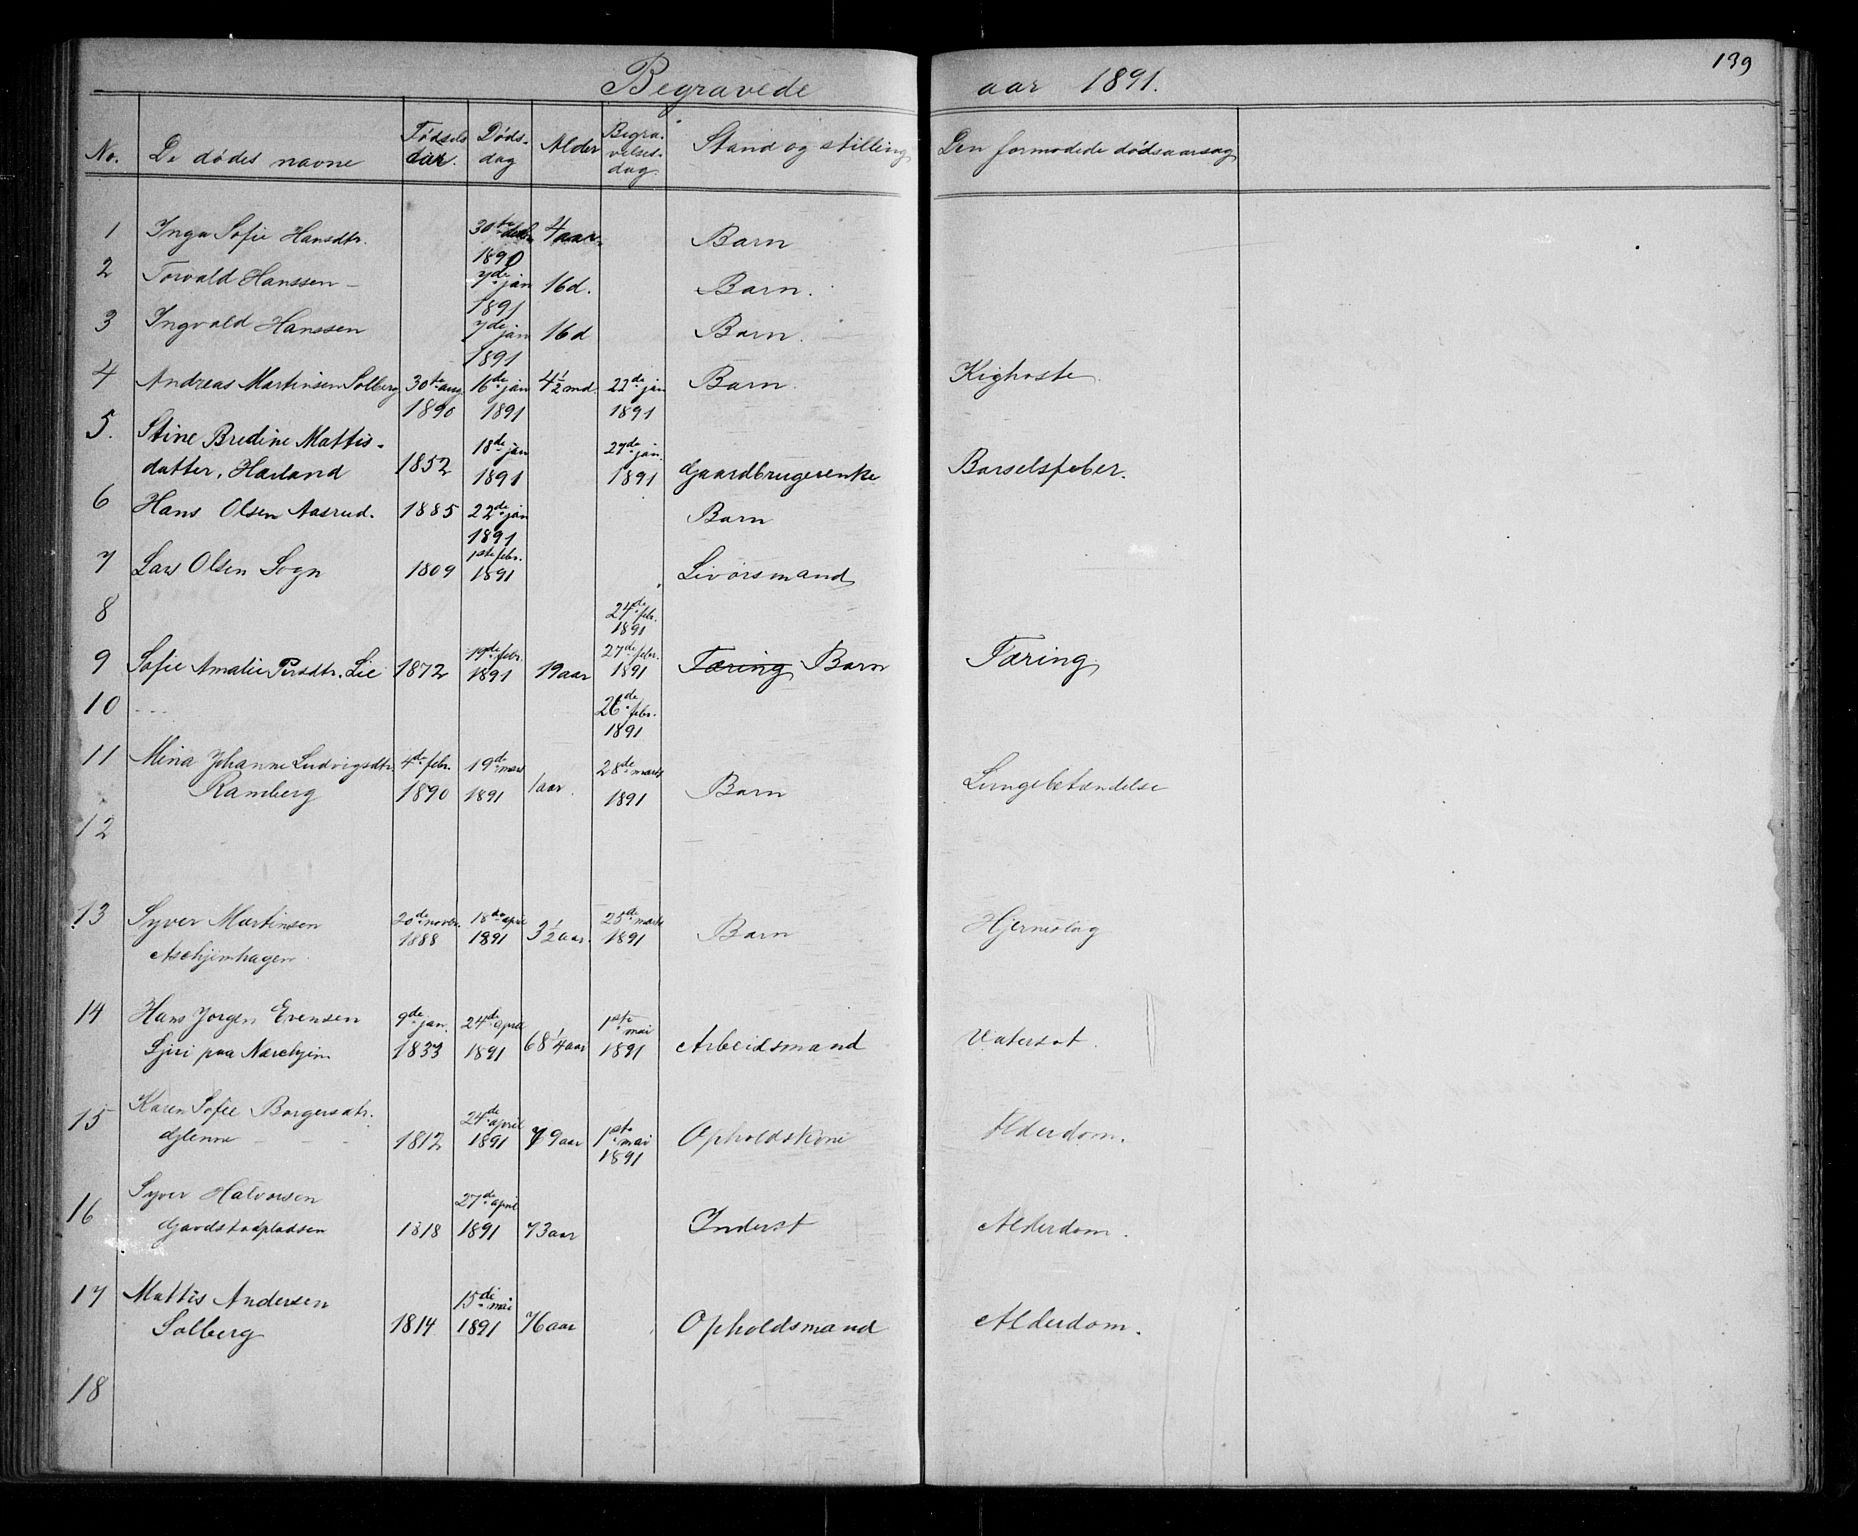 139
Begravede aar 1891.
No. De dødes navne Fødsels aar. Døds-dag Alder Begra-velses-dag Stand og stilling Den formodede dødsaarsag
1 Inga Sofie Hansdtr. 30te decbr 1890 4 aar Barn
2 Torvald Hanssen 7de jan 1891 16 d. Barn.
3 Ingvald Hanssen 7de jan 1891 16 d Barn.
4 Andreas Martinsen Solberg 30te aug 1890 16de jan 1891 4½ md. 22de jan 1891 Barn. Kighoste.
5. Stine Bredine Mattis-
datter, Hærland 1852 18de jan 1891 27de jan. 1891 Gaardbrugerenke Barselsfeber.
6 Hans Olsen Aasrud. 1885 22de jan 1891 Barn
7 Lars Olsen Sogn 1809 1ste febr. 1891 Livørsmand
8 24de febr. 1891
9 Sofie Amalie Persdtr. Lie 1872 19de febr. 1891 19 aar 27de febr. 1891 Tæring Barn Tæring
10 - - - 26de febr. 1891
11 Mina Johanne Ludvigsdtr.
Ramberg 4de febr. 1890 19de mars 1891 1 aar. 28de marts 1891 Barn Lungebetændelse
12
13 Syver Martinsen
Aschjemhagen 20de novbr. 1888 18de april 1891 3½ aar. 25de marts 1891 Barn Hjerneslag
14 Hans Jørgen Evensen
paa Narchjim 9de jan. 1833 24de april 1891 68¼ aar 1ste mai 1891 Arbeidsmand Vatersot.
15 Karen Sofie Borgersdtr.
Glenne - - - 1812 24de april 1891 79 aar 1ste mai 1891 Opholdskone Alderdom.
16 Syver Halvorsen
Gjordstadpladsen 1818 27de april 1891 73 aar Inderst Alderdom.
17 Mattis Andersen
Solberg 1814 15de mai 1891 76 aar Opholdsmand Alderdom.
18